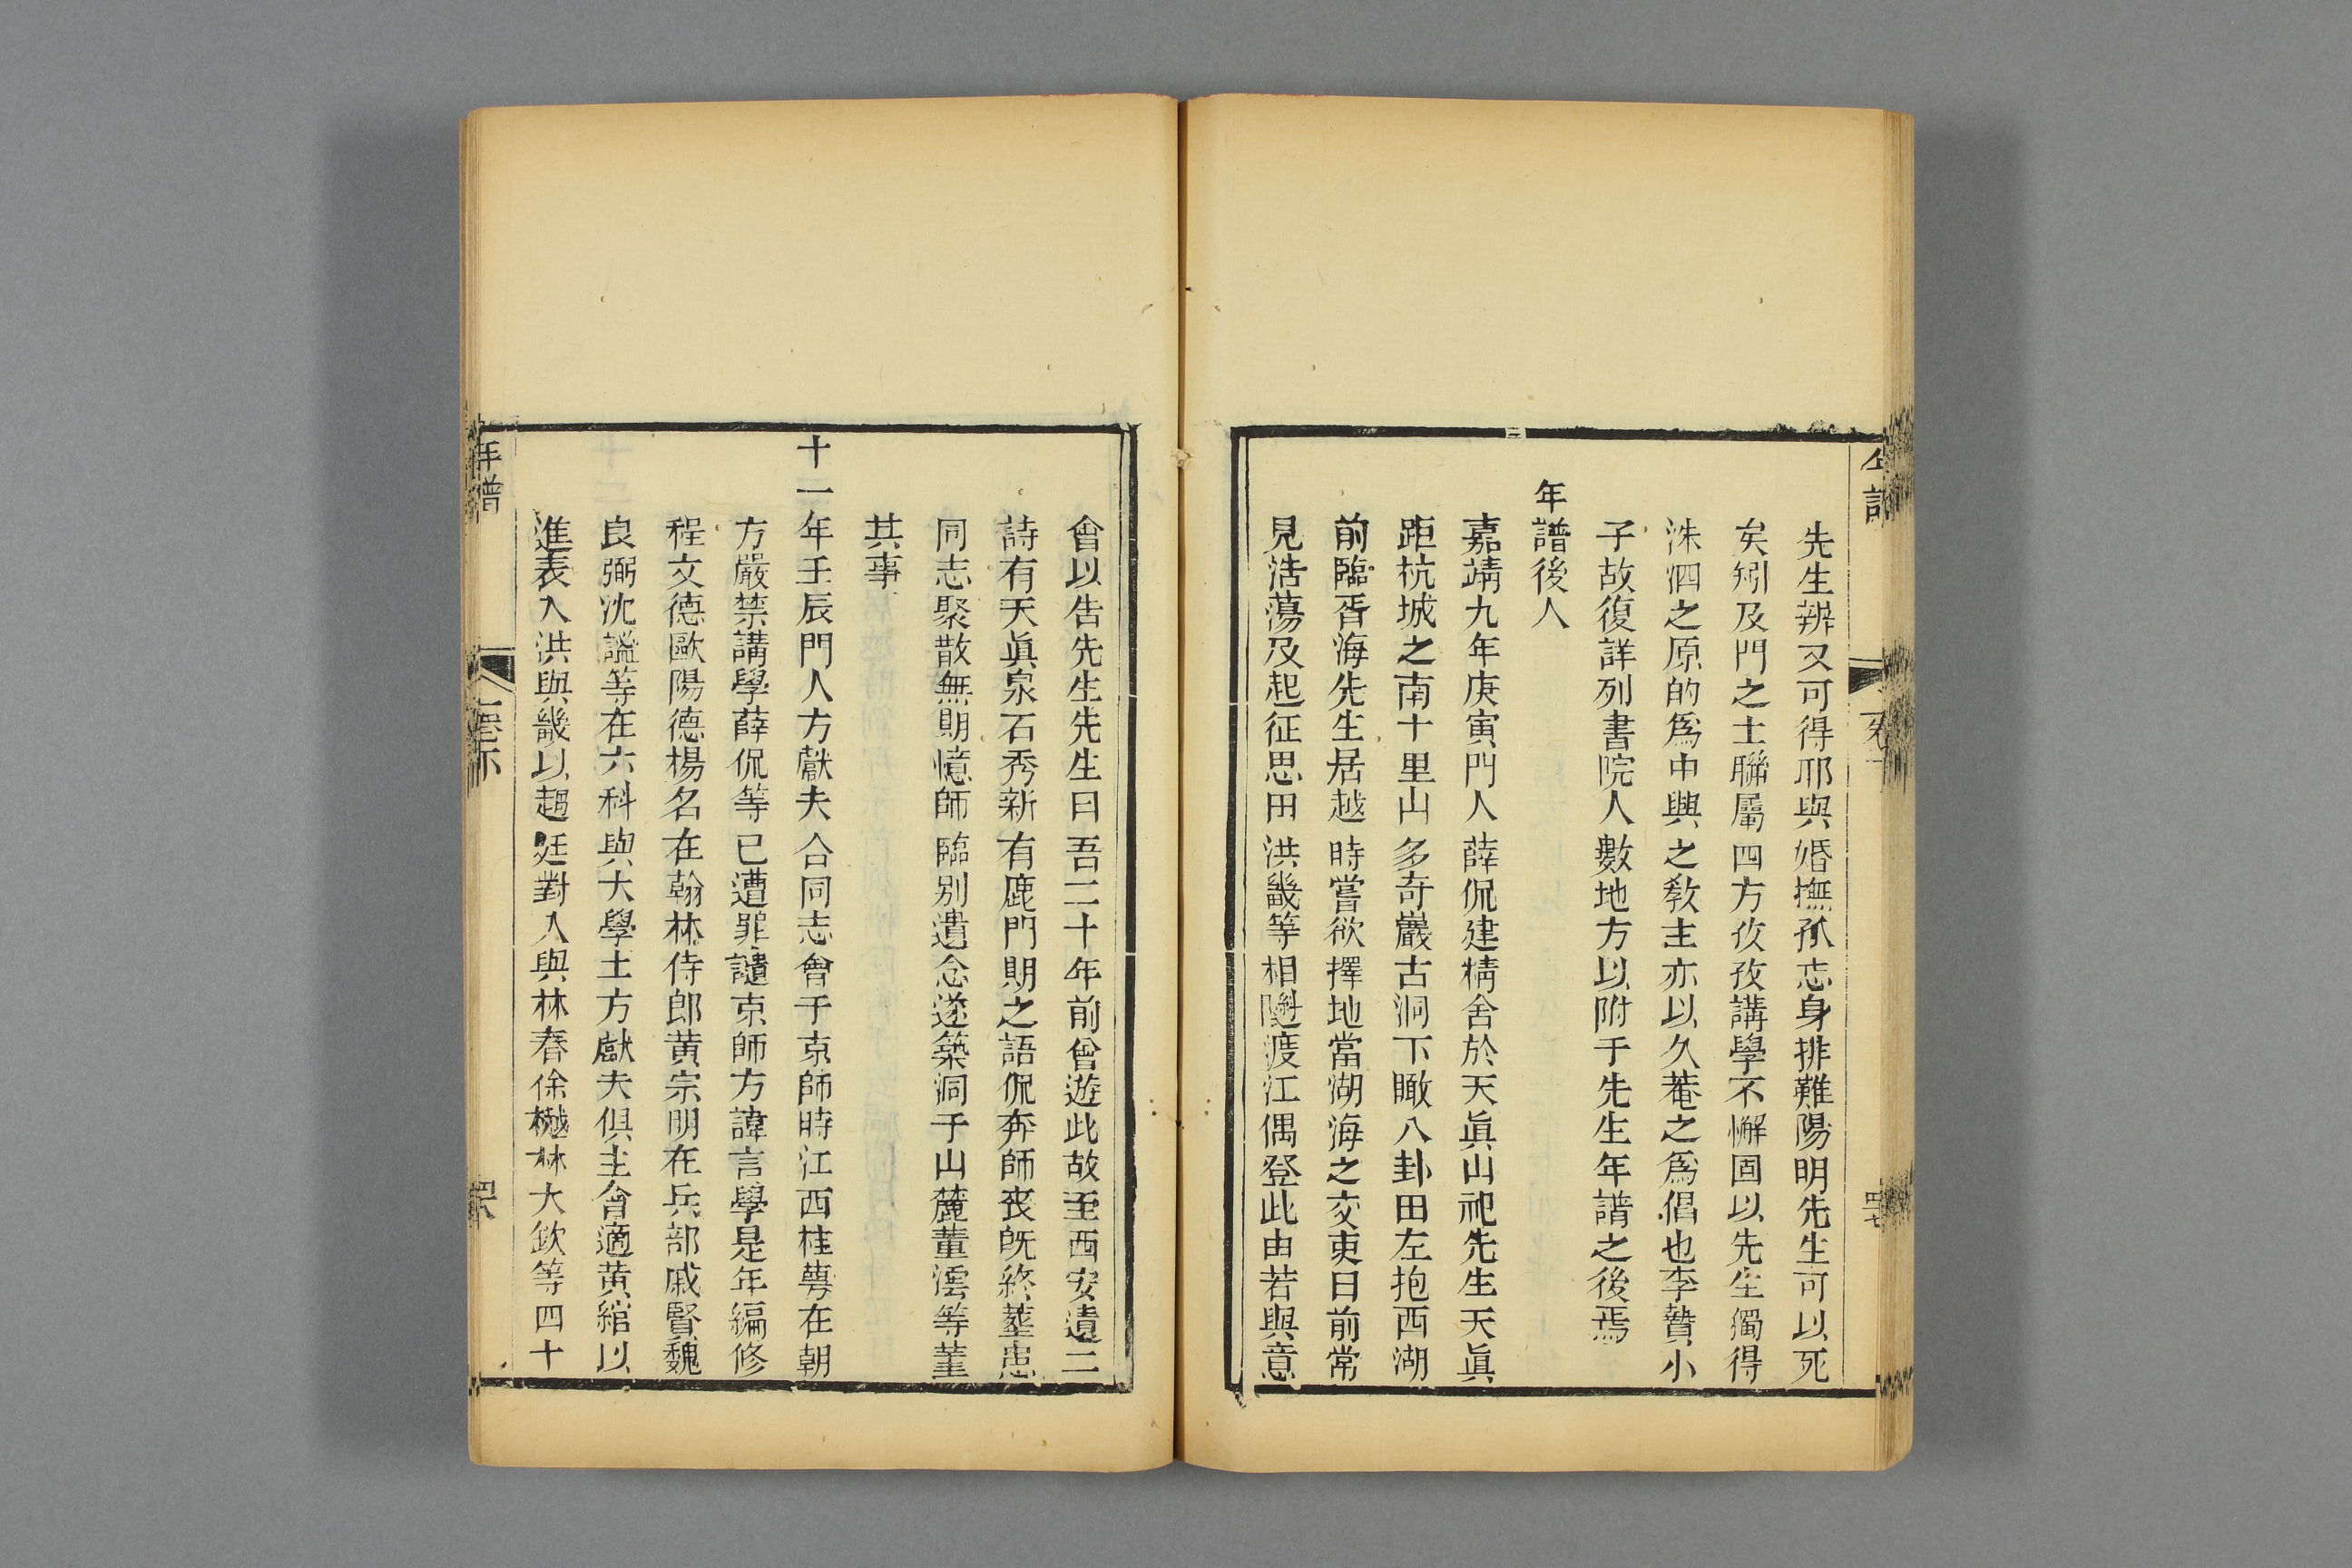 先生辨又可得耶與婚撫孤忘身排難陽明先生可以死
矣矧及門之士聯屬四方孜孜講學不懈固以先生獨得
洙泗之原的爲中興之敎主亦以久菴之爲倡也李贄小
子故復詳列書院人數地方以附于先生年譜之後焉
年譜後人
嘉靖九年庚寅門人薛侃建精舍於天眞山祀先生天眞
距杭城之南十里山多奇巖古洞下瞰八卦田左抱西湖
前臨胥海先生居越時嘗欲擇地當湖海之交吏曰前常
見浩蕩及起征思田洪畿等相隨渡江偶登此由若與意
會以告先生先生曰吾二十年前曾遊此故至西安遺二
詩有天眞泉石秀新有鹿門期之語侃奔師喪旣終塟患
同志聚散無期憶師臨別遺念遂築洞于山麓董澐等董
其事
十一年壬辰門人方獻夫合同志會于京師時江西桂蕚在朝
方嚴禁講學薛侃等已遭罪譴京師方諱言學是年編修
程文德歐陽德楊名在翰林侍郎黃宗明在兵部戚賢魏
良弼沈謐等在六科與大學士方獻夫俱主會適黃綰以
進表入洪與畿以趨廷對入與林春徐樾林大欽等四十
年譜